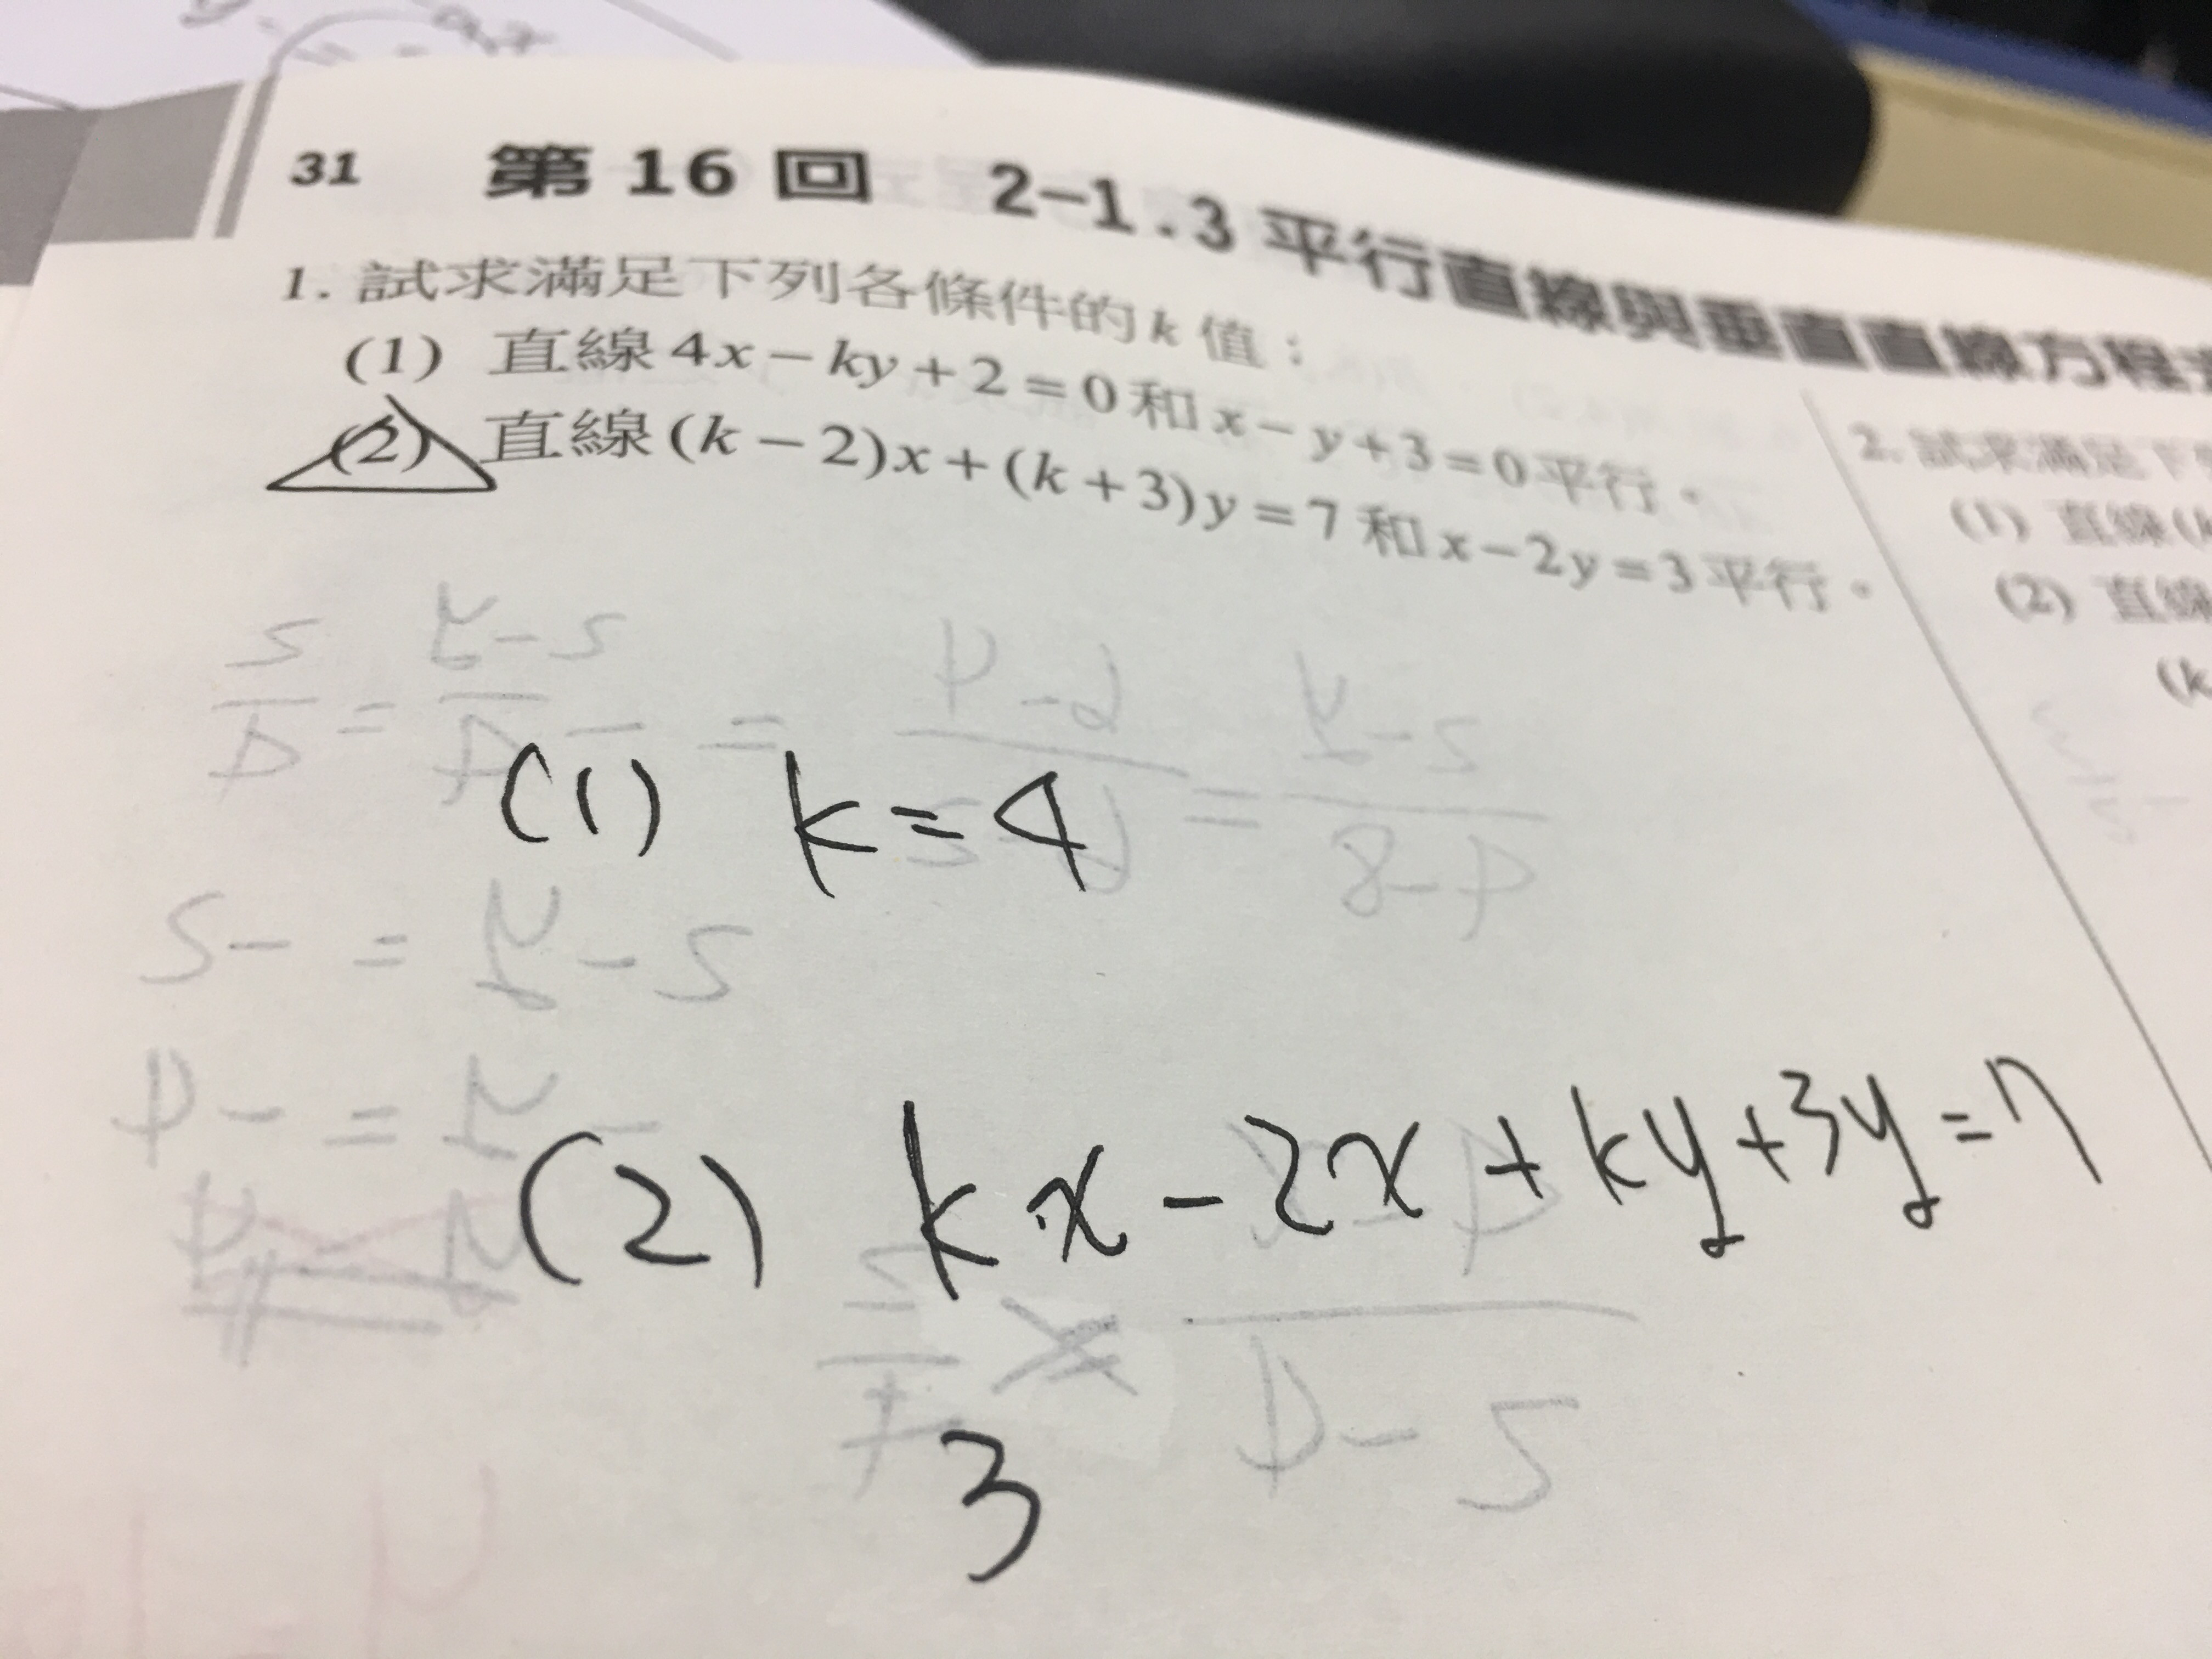 31 第 16 回 2-1.3 平行直線與垂直直線方程式
1. 試求滿足下列各條件的 k 值：
(1) 直線 4x－ky＋2＝0 和 x－y＋3＝0 平行。
(2) 直線 (k－2)x＋(k＋3)y＝7 和 x－2y＝3 平行。
2. 試求滿足下
(1) 直線(
(2) 直線
(k
(1) k=4
(2) kx-2x+ky+3y=7
3